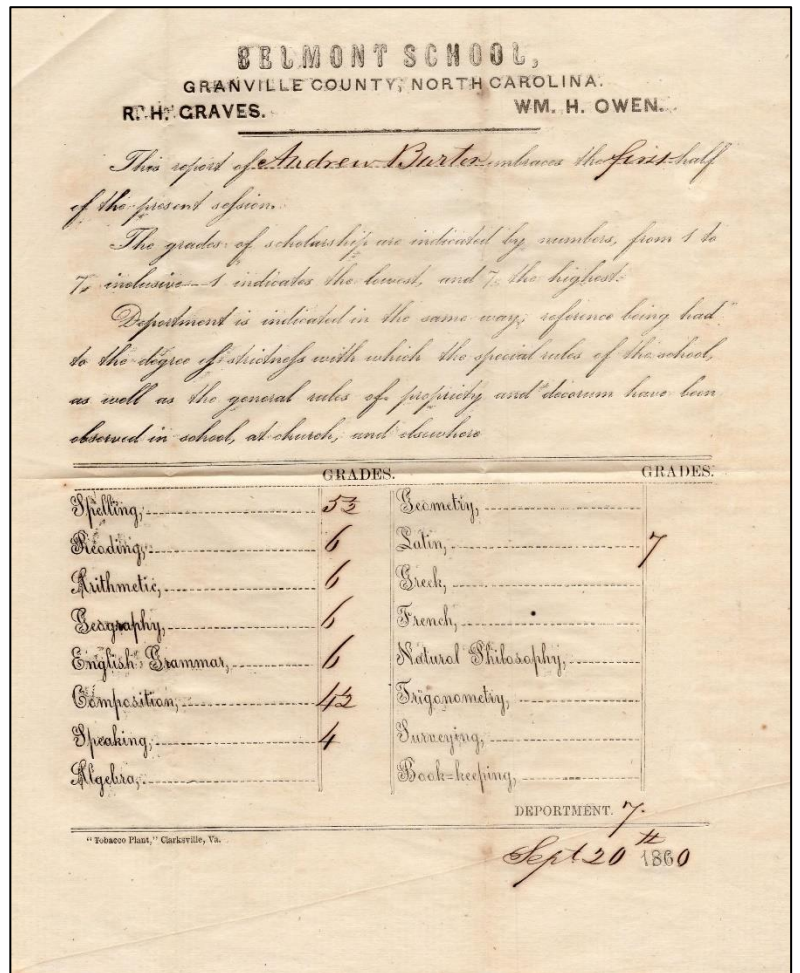 BELMONT SCHOOL,
GRANVILLE COUNTY, NORTH CAROLINA.
R. H. GRAVES. WM. H. OWEN.
This report of Andrew Burton embraces the first half
of the present session.
The grades of scholarship are indicated by numbers, from 1 to
7, inclusive—1 indicates the lowest, and 7, the highest.
Deportment is indicated in the same way; reference being had
to the degree of strictness with which the special rules of the school,
as well as the general rules of propriety and decorum have been
observed in school, at church, and elsewhere
GRADES. GRADES.
Spelling, 5½ Geometry,
Reading, 6 Latin, 7
Arithmetic, 6 Greek,
Geography, 6 French,
English Grammar, 6 Natural Philosophy,
Composition, 4½ Trigonometry,
Speaking, 4 Surveying,
Algebra, Book-keeping,
DEPORTMENT. 7.
"Tobacco Plant," Clarksville, Va.
Sept 20th 1860